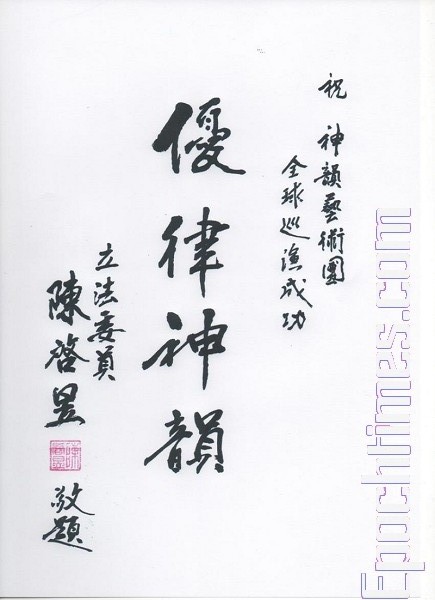 祝 神韻藝術團
全球巡演成功
優律神韻
立法委員
陳啓昱
敬題
Epochtimes.com